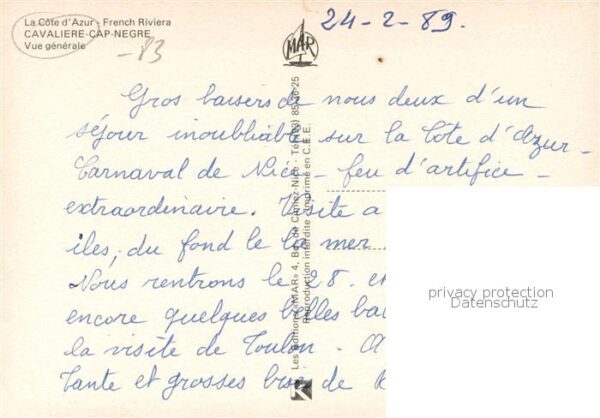 La Côte d'Azur - French Riviera
CAVALIERE-CAP-NEGRE
Vue générale
-83
MAR
24-2-89.
Gros baisers de nous deux d'un
séjour inoubliable sur la Côte d'Azur -
Carnaval de Nice - feu d'artifice -
extraordinaire. Visite a
iles, du fond de la mer
Nous rentrons le 28. et
encore quelques belles
la visite de Toulon - A
Tante et grosses bise de
Les éditions «MAR» 4, Bd de Cimiez-Nice - Tél. (93)
Reproduction interdite - Imprimé en C.E.E.
privacy protection
Datenschutz